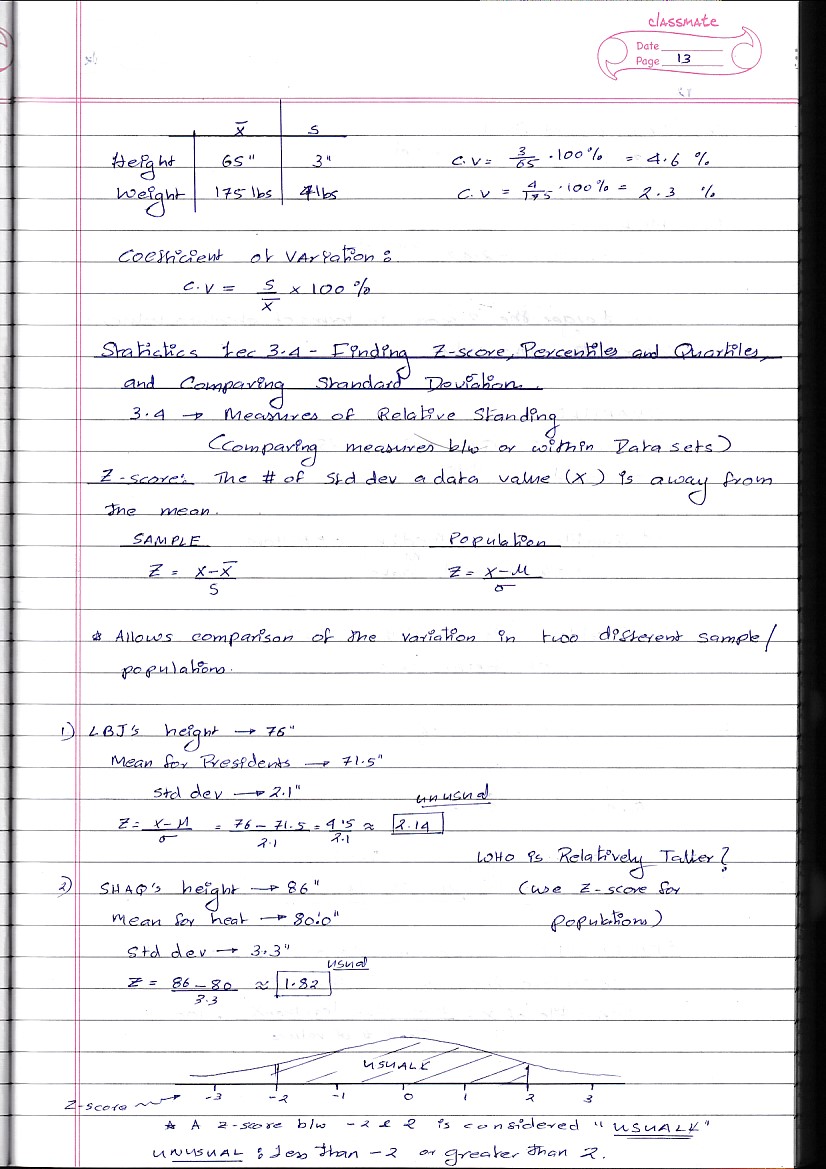 classmate
Date
Page 13
x̄ s
Height 65" 3" C.V = 3/65 · 100% = 4.6 %
Weight 175 lbs 4 lbs C.V = 4/175 · 100% = 2.3 %
Coefficient of Variation :
C.V = s/x̄ × 100 %
Statictics Lec 3.4 - Finding Z-score, Percentiles and Quartiles,
and Comparing Standard Deviation.
3.4 → Measures of Relative Standing
(Comparing measures b/w or within Data sets)
Z-score: The # of std dev a data value (x) is away from
the mean.
SAMPLE Population
Z = x-x̄/s Z = x-μ/σ
* Allows comparison of the variation in two different sample/
populations.
1) LBJ's height → 76"
Mean for Presidents → 71.5"
Std dev → 2.1" unusual
Z = x-μ/σ = 76-71.5/2.1 = 4.5/2.1 ≈ 2.14
WHO is Relatively Taller?
2) SHAQ's height → 86" (use Z-score for
Mean for heat → 80.0" populations)
Std dev → 3.3"
usual
Z = 86-80/3.3 ≈ 1.82
USUALK
Z-score -3 -2 -1 0 1 2 3
* A z-score b/w -2 & 2 is considered "USUALK"
UNUSUAL : less than -2 or greater than 2.